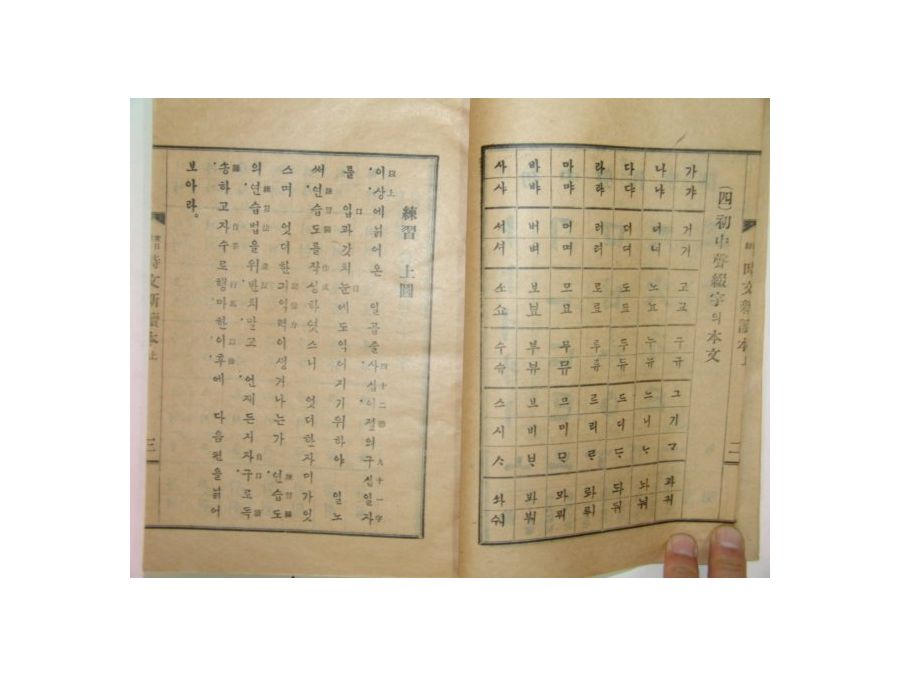 (四)初中聲綴字의本文
가 갸 거 기 고 교 구 규 그 기 ᄀᆞ 과 궈
나 냐 너 녀 노 뇨 누 뉴 느 니 ᄂᆞ 놔 눠
다 댜 더 뎌 도 됴 두 듀 드 디 ᄃᆞ 돠 둬
라 랴 러 려 로 료 루 류 르 리 ᄅᆞ 롸 뤄
마 먀 머 며 모 묘 무 뮤 므 미 ᄆᆞ 뫄 뭐
바 뱌 버 벼 보 뵤 부 뷰 브 비 ᄇᆞ 봐 붜
사 샤 서 셔 소 쇼 수 슈 스 시 ᄉᆞ 솨 숴
二
練習 上圖
이상에닑어온 일곱줄사십이절의구십일자
를 입과갓치눈에도익어지기위하야 일노
써 연습도를작성하엿스니 엇더한자미가잇
스며 엇더한기억력이생겨나는가 연습도
의연습법을위반치말고 언제든지자구로독
송하고자수로행마한이후에 다음편을닑어
보아라。
時文新讀本上
三